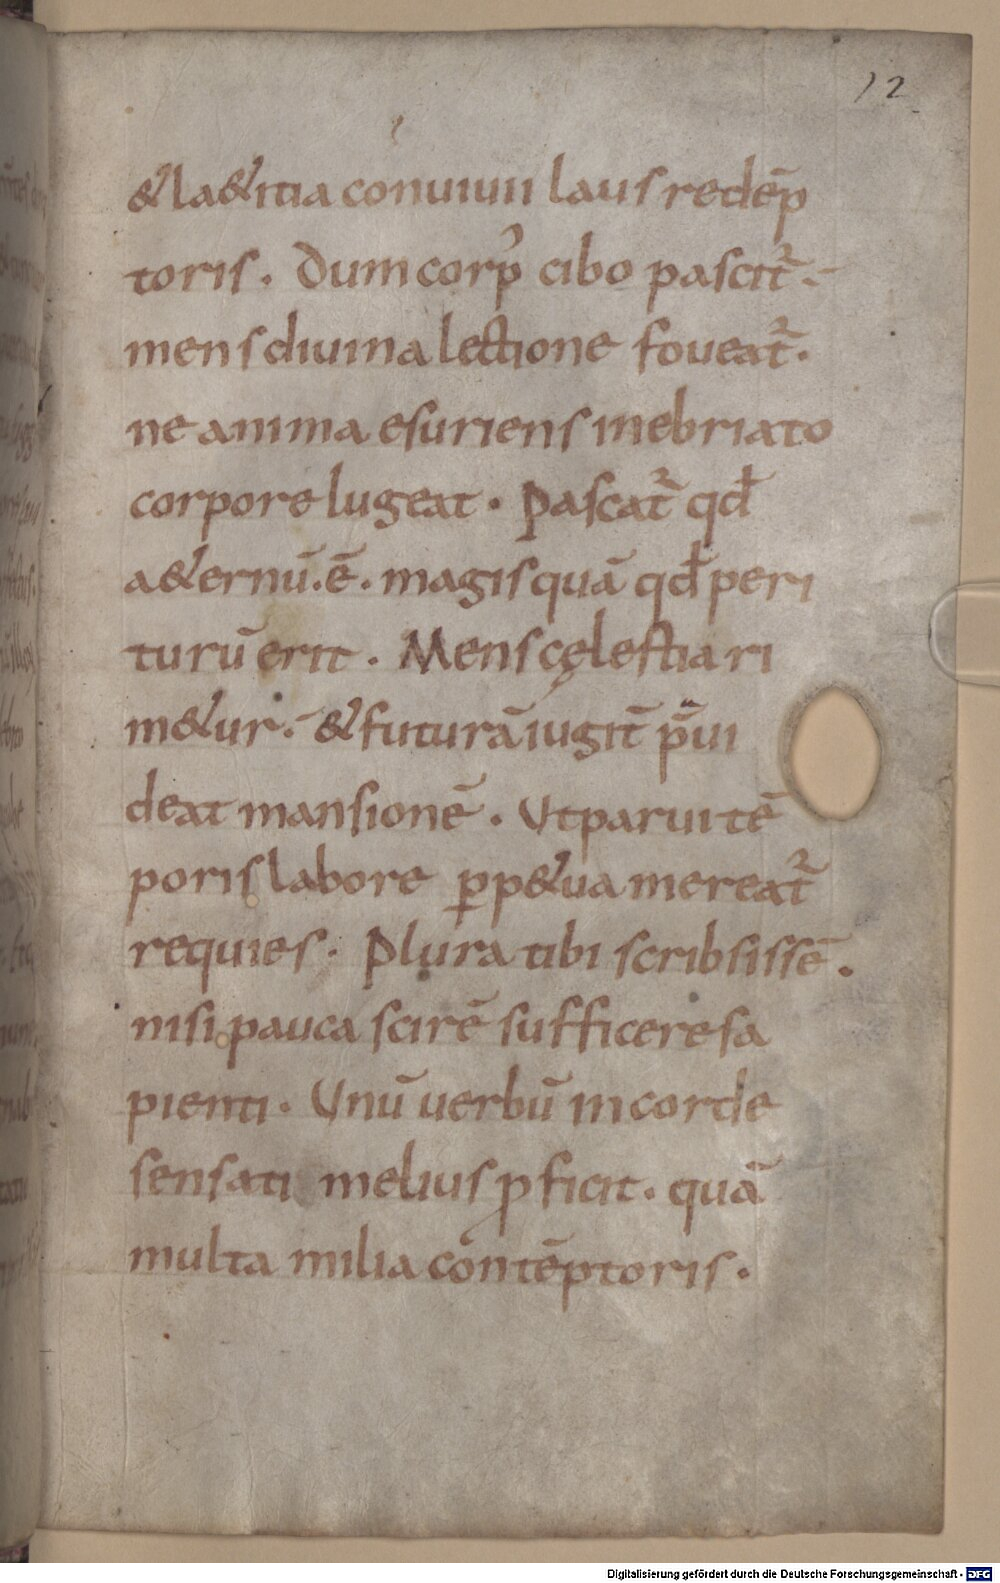 12
&la&itia conuiuii laus redēp
toris. Dum corp᾽ cibo pascit᷑.-
mens diuina lectione foueat᷑.
ne anima esuriens inebriato
corpore lugeat. Pascat᷑ qđ
a&ernū.ē. magis quā qđ peri
turū erit. Mens cęlestia ri
m&ur.- & futurā iugit̄ p̄ui
deat mansionē. Ut parui tē
poris labore ꝑp&ua mereat᷑
requies. Plura tibi scribsissē.
nisi pauca scirē sufficere sa
pienti. Unū uerbū in corde
sensati melius ꝓficit. quā
multa milia contēptoris.
Digitalisierung gefördert durch die Deutsche Forschungsgemeinschaft - DFG